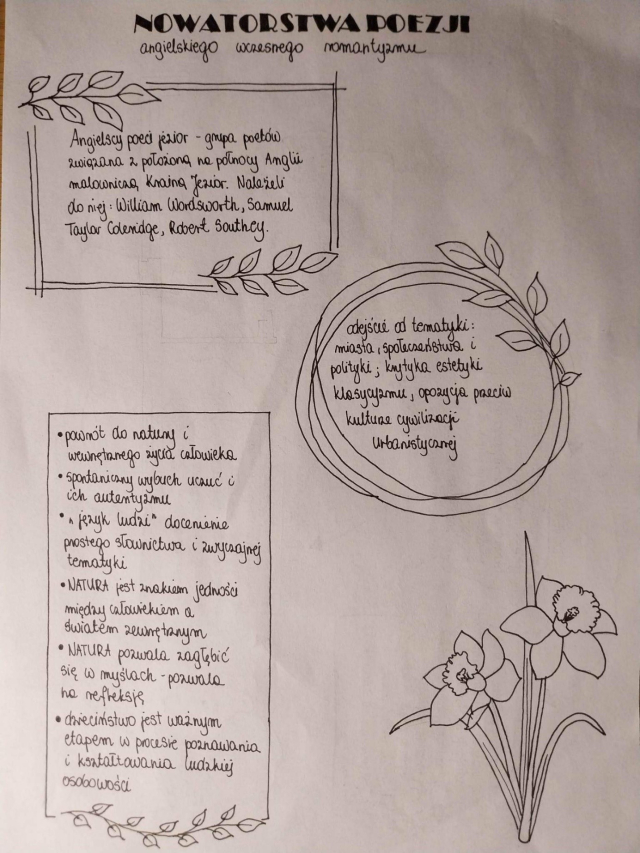 NOWATORSTWA POEZJI
angielskiego wczesnego romantyzmu
Angielscy poeci jezior - grupa poetów
związana z położoną na północy Anglii
malowniczą Krainą Jezior. Należeli
do niej: William Wordsworth, Samuel
Taylor Coleridge, Robert Southey.
odejście od tematyki:
miasta, społeczeństwa i
polityki; krytyka estetyki
klasycyzmu, opozycja przeciw
kulturze cywilizacji
urbanistycznej
• powrót do natury i
wewnętrznego życia człowieka
• spontaniczny wybuch uczuć i
ich autentyzmu
• "język ludzi" docenienie
prostego słownictwa i zwyczajnej
tematyki
• NATURA jest znakiem jedności
między człowiekiem a
światem zewnętrznym
• NATURA pozwala zagłębić
się w myślach - pozwala
na refleksję
• dzieciństwo jest ważnym
etapem w procesie poznawania
i kształtowania ludzkiej
osobowości